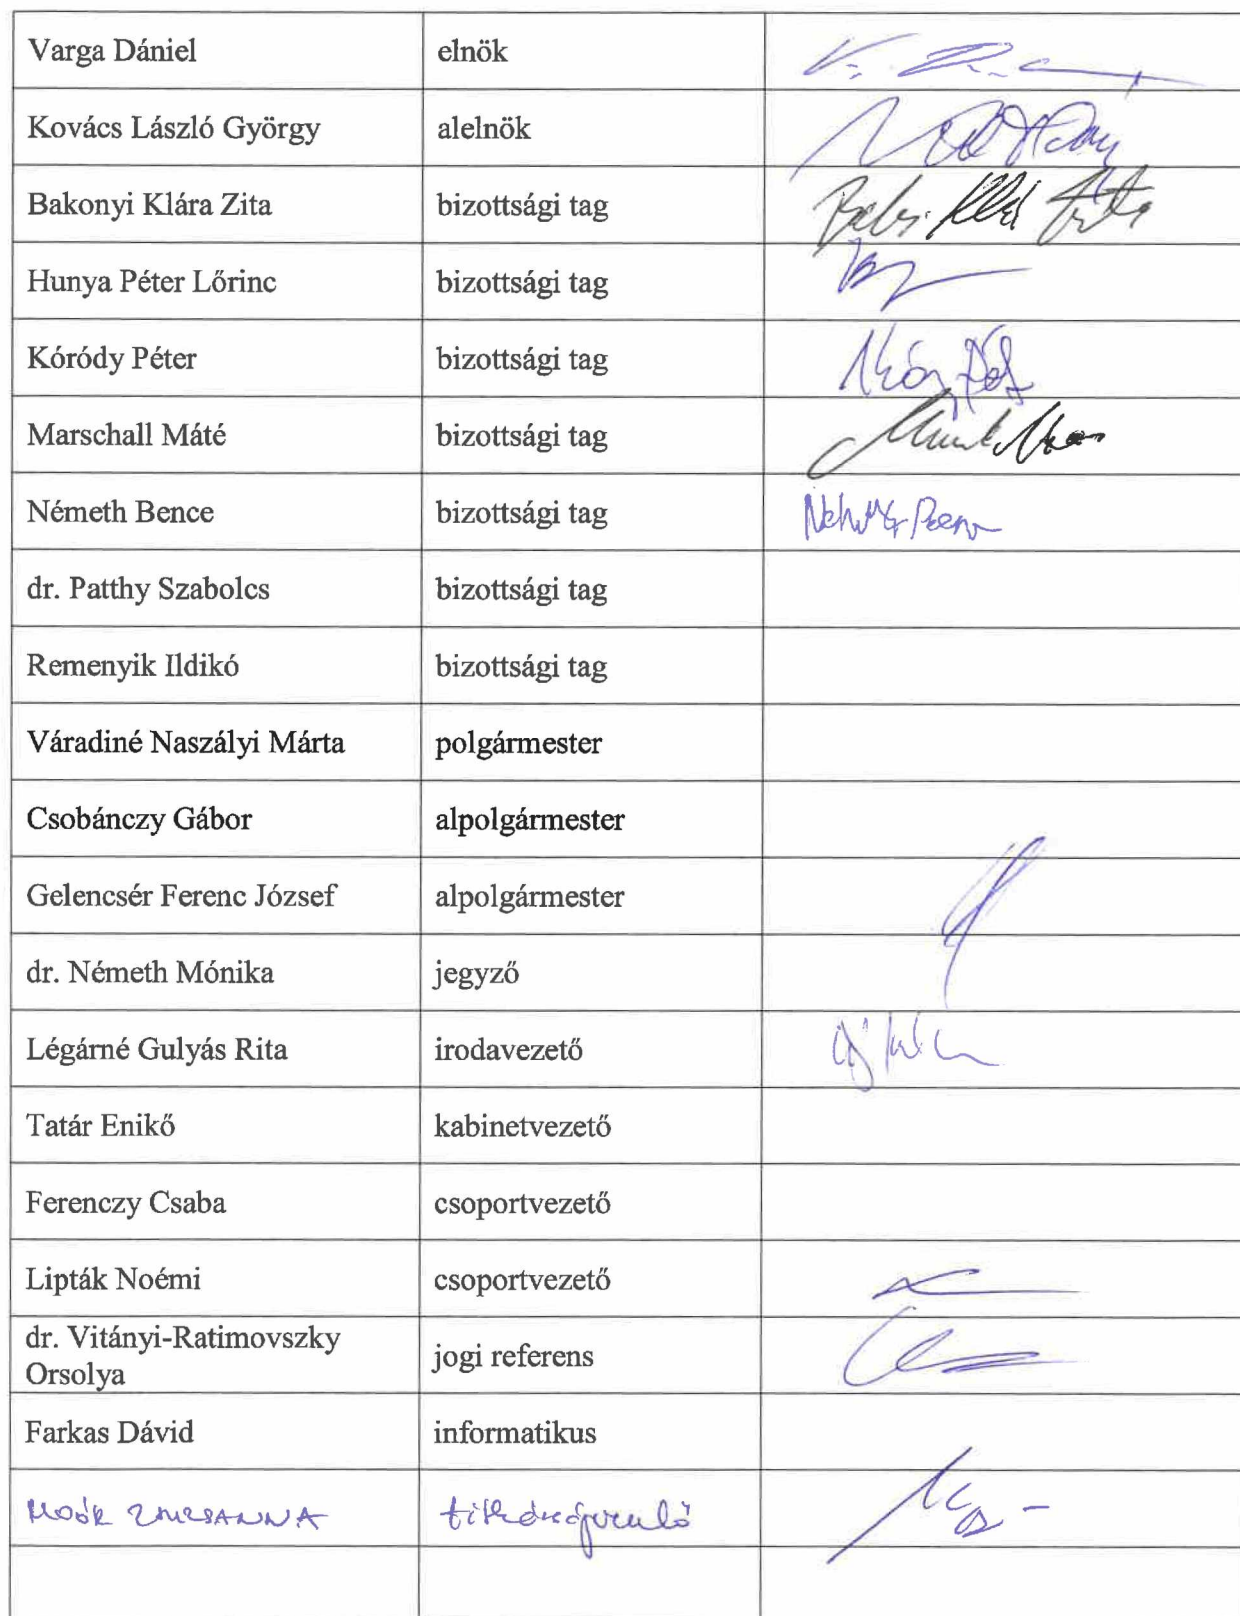 Varga Dániel elnök
Kovács László György alelnök
Bakonyi Klára Zita bizottsági tag
Hunya Péter Lőrinc bizottsági tag
Kóródy Péter bizottsági tag
Marschall Máté bizottsági tag
Németh Bence bizottsági tag
dr. Patthy Szabolcs bizottsági tag
Remenyik Ildikó bizottsági tag
Váradiné Naszályi Márta polgármester
Csobánczy Gábor alpolgármester
Gelencsér Ferenc József alpolgármester
dr. Németh Mónika jegyző
Légárné Gulyás Rita irodavezető
Tatár Enikő kabinetvezető
Ferenczy Csaba csoportvezető
Lipták Noémi csoportvezető
dr. Vitányi-Ratimovszky
Orsolya jogi referens
Farkas Dávid informatikus
ZSUZSANNA